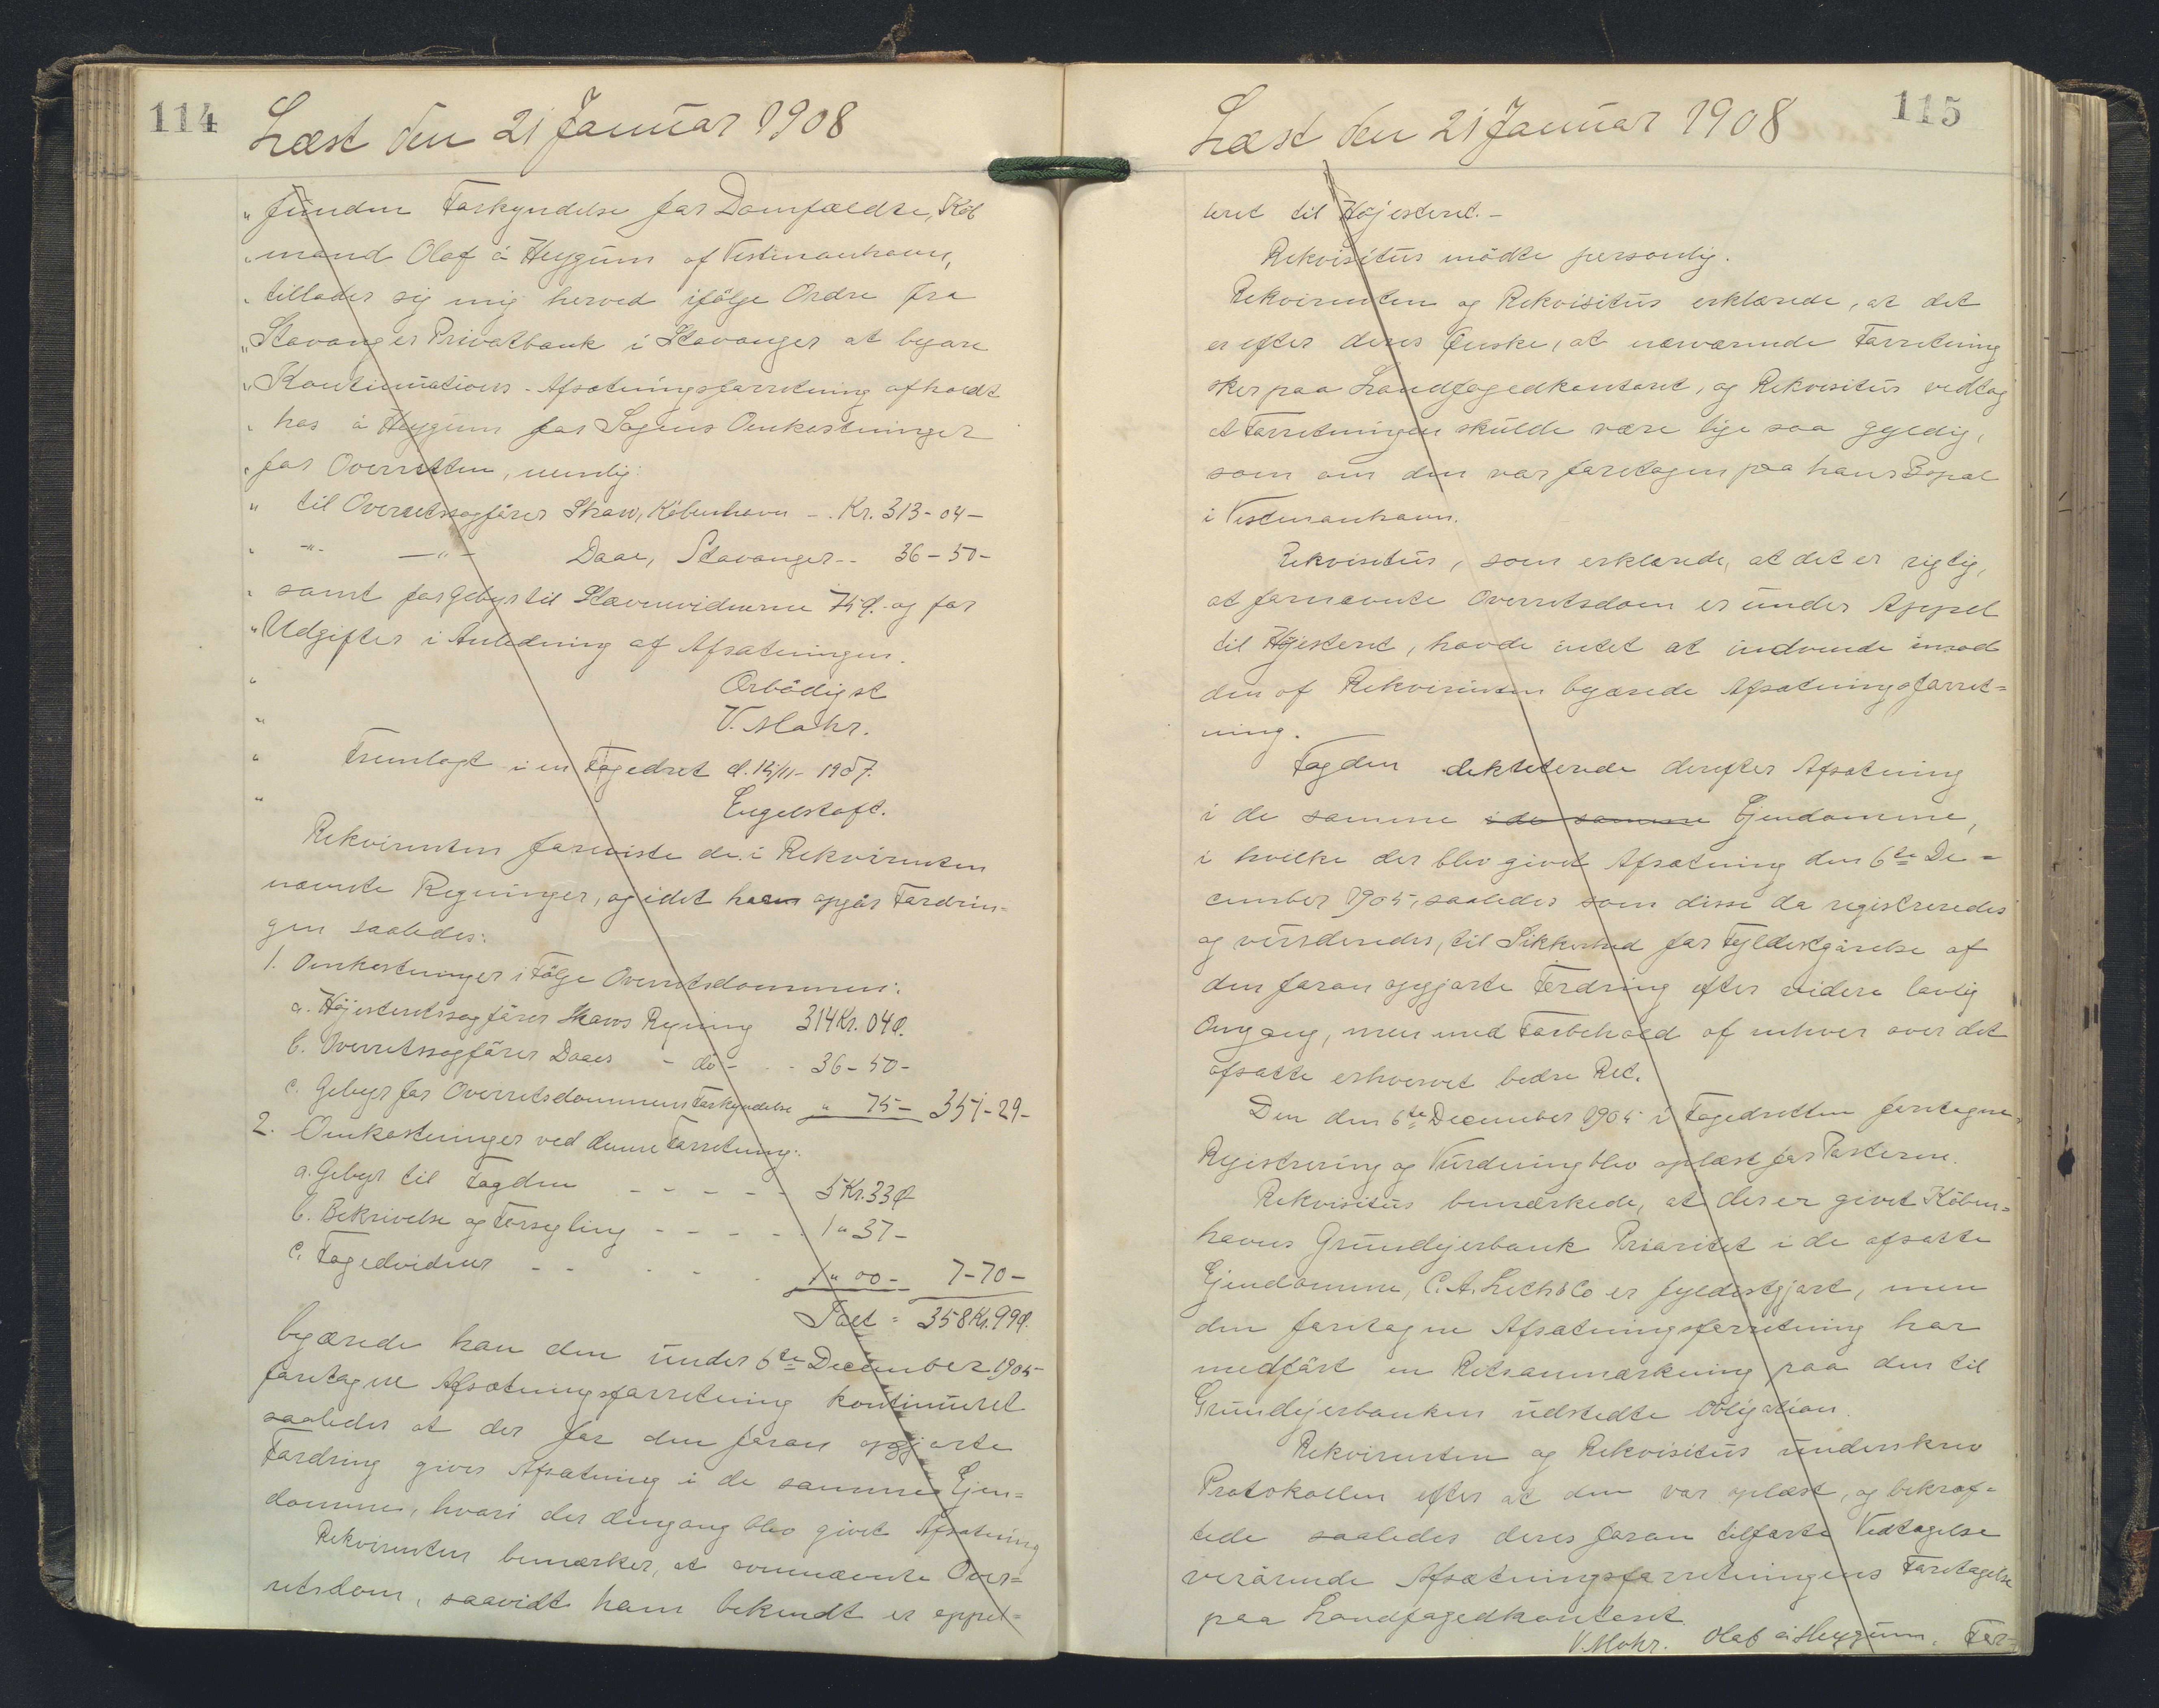 114
Læst den 21 Januar 1908
" funden Forkyndelse for Domfældte, Køb
" mand Olaf á Heygum af Vestmanhavn,
" tillader sig mig herved ifølge Ordre fra
" Stavanger Privatbank i Stavanger at begære
" Kontinuations-Afsætningsforretning afholdt
" hos á Heygum for Sagens Omkostninger
" for Overretten, nemlig:
" til Overretssagfører Skaw, København - Kr. 313-04-
" -"- -"- Daae, Stavanger -- 36-50-
" samt for Gebyr til Stævnevidnerne 75 Ø. og for
" Udgifter i Anledning af Afsætningen.
" Ærbødigst
" V. Mohr.
" Fremlagt i en Fogedret d. 15/11-1907.
" Engelstoft.
Rekvirenten foreviste de i Rekvirenten
nævnte Regninger, og idet han opgør Fordrin-
gen saaledes:
1. Omkostninger i Følge Overretsdommen:
a. Højesteretssagfører Skaws Regning 314 Kr. 04 Ø.
b. Overretssagfører Daaes - do - - 36-50-
c. Gebyr for Overretsdommens Forkyndelse " 75- 351-29-
2. Omkostninger ved denne Forretning:
a. Gebyr til Fogden - - - - - 5 Kr. 33 Ø
b. Bekrivelse og Forsegling - - - - - 1 " 37-
c. Fogedvidner - - - - - 1 " 00- 7-70-
Ialt = 358 Kr. 99 Ø.
begærede han den under 6te December 1905
foretagne Afsætningsforretning kontinueret
saaledes at der for den foran opgjorte
Fordring gives Afsætning i de samme Ejen=
domme, hvori der dengang blev givet Afsætning
Rekvirenten bemærker, at ovennævnte Over=
retsdom, saavidt ham bekendt er appel=
115
Læst den 21 Januar 1908
leret til Højesteret.-
Rekvisitus mødte personlig.
Rekvirenten og Rekvisitus erklærede, at det
er efter deres Ønske, at nærværende Forretning
sker paa Landfogedkontoret, og Rekvisitus vedtog
at Forretningen skulde være lige saa gyldig,
som om den var foretagen paa hans Bopæl
i Vestmanhavn.
Rekvisitus, som erklærede, at det er rigtig,
at fornævnte Overretsdom er under Appel
til Højesteret, havde intet at indvende imod
den af Rekvirenten begærede Afsætningsforret=
ning.
Fogden dekreterede derefter Afsætning
i de samme i de samme Ejendomme,
i hvilke der blev givet Afsætning den 6te De=
cember 1905, saaledes som disse da registreredes
og vurderedes, til Sikkerhed for Fyldestgørelse af
den foran opgjorte Fordring efter videre lovlig
Omgang, men med Forbehold af enhver over det
afsatte erhvervet bedre Ret.
Den den 6te December 1905 i Fogedretten foretagne
Registrering og Vurdering blev oplæst for Parterne.
Rekvisitus bemærkede, at der er givet Køben=
havns Grundejerbank Prioritet i de afsatte
Ejendomme, C. A. Lech & Co er fyldestgjort, men
den foretagne Afsætningsforretning har
medført en Retsanmærkning paa den til
Grundejerbanken udstedte Obligation.
Rekvirenten og Rekvisitus underskrev
Protokollen efter at den var oplæst, og bekræf=
tede saaledes deres foran tilførte Vedtagelse
vedrørende Afsætningsforretningens Foretagelse
paa Landfogedkontoret
V. Mohr. Olaf á Heygum. For-